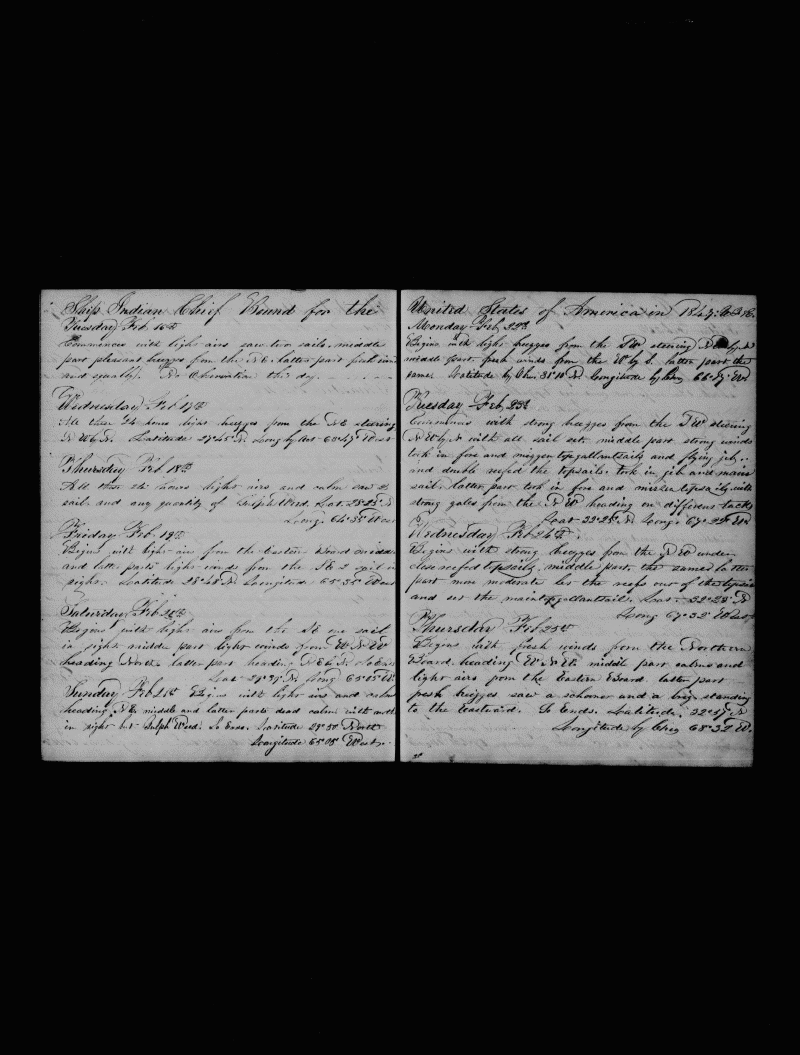 Ship Indian Chief Bound for the
Tuesday Feb 16th
Commences with light airs saw two sails. middle
part pleasant breezes from the N E. latter part fresh
and squally. No Observation this day.
Wednesday Feb 17th
All these 24 hours light breezes from the N E steering
N W b N. Latitude 27°45 N. Long by 63°47 West
Thursday Feb 18th
All these 24 hours light airs and calm saw 2
sail and any quantity of Gulph Weed. Lat. 28°25 N
Long. 64°35 West
Friday Feb 19th
Begins with light airs from the Eastern board middle
and latter parts light winds from the S E 2 sail in
sight. Latitude 28°48 N. Longitude 65°35 West
Saturday Feb 20th
Begins with light airs from the S E one sail
in sight. middle part light winds from W N W
heading North. latter part heading N E b N.
Lat 29°39 N. Long 65°15 W.
Sunday Feb 21st Begins with light airs and calms
heading N E. middle and latter parts dead calm with
in sight but Gulph Weed. So Ends. Latitude 29°50 North
Longitude 65°05 West.
United States of America in 1847.
Monday Feb, 22d
Begins with light breezes from the S W steering N W by N
middle part fresh winds from the W by S. latter part the
same. Latitude by Obs. 31°10 N. Longitude by Chro 66°17 W
Tuesday Feb, 23d
Commences with strong breezes from the S W steering
N W by N with all sail set. middle part strong winds
took in fore and mizzen topgallantsails and flying jib.
and double reefed the topsails. took in jib and main
sail. latter part took in fore and mizzen topsails with
strong gales from the N W heading on different tacks
Lat 32°25 N Long. 67°22 W
Wednesday Feb 24th
Begins with strong breezes from the N W under
close reefed topsails. middle part the same. latter
part more moderate let the reefs out of the topsails
and set the maintopgallantsail. Lat 32°25 N
Long 67°32 West
Thursday Feb 25th
Begins with fresh winds from the Northern
Board heading W N W. middle part calms and
light airs from the Eastern Board. latter part
fresh breezes saw a schoner and a brig standing
to the eastward. So Ends. Latitude. 32°47 N
Longitude by Chro 68°32 W.